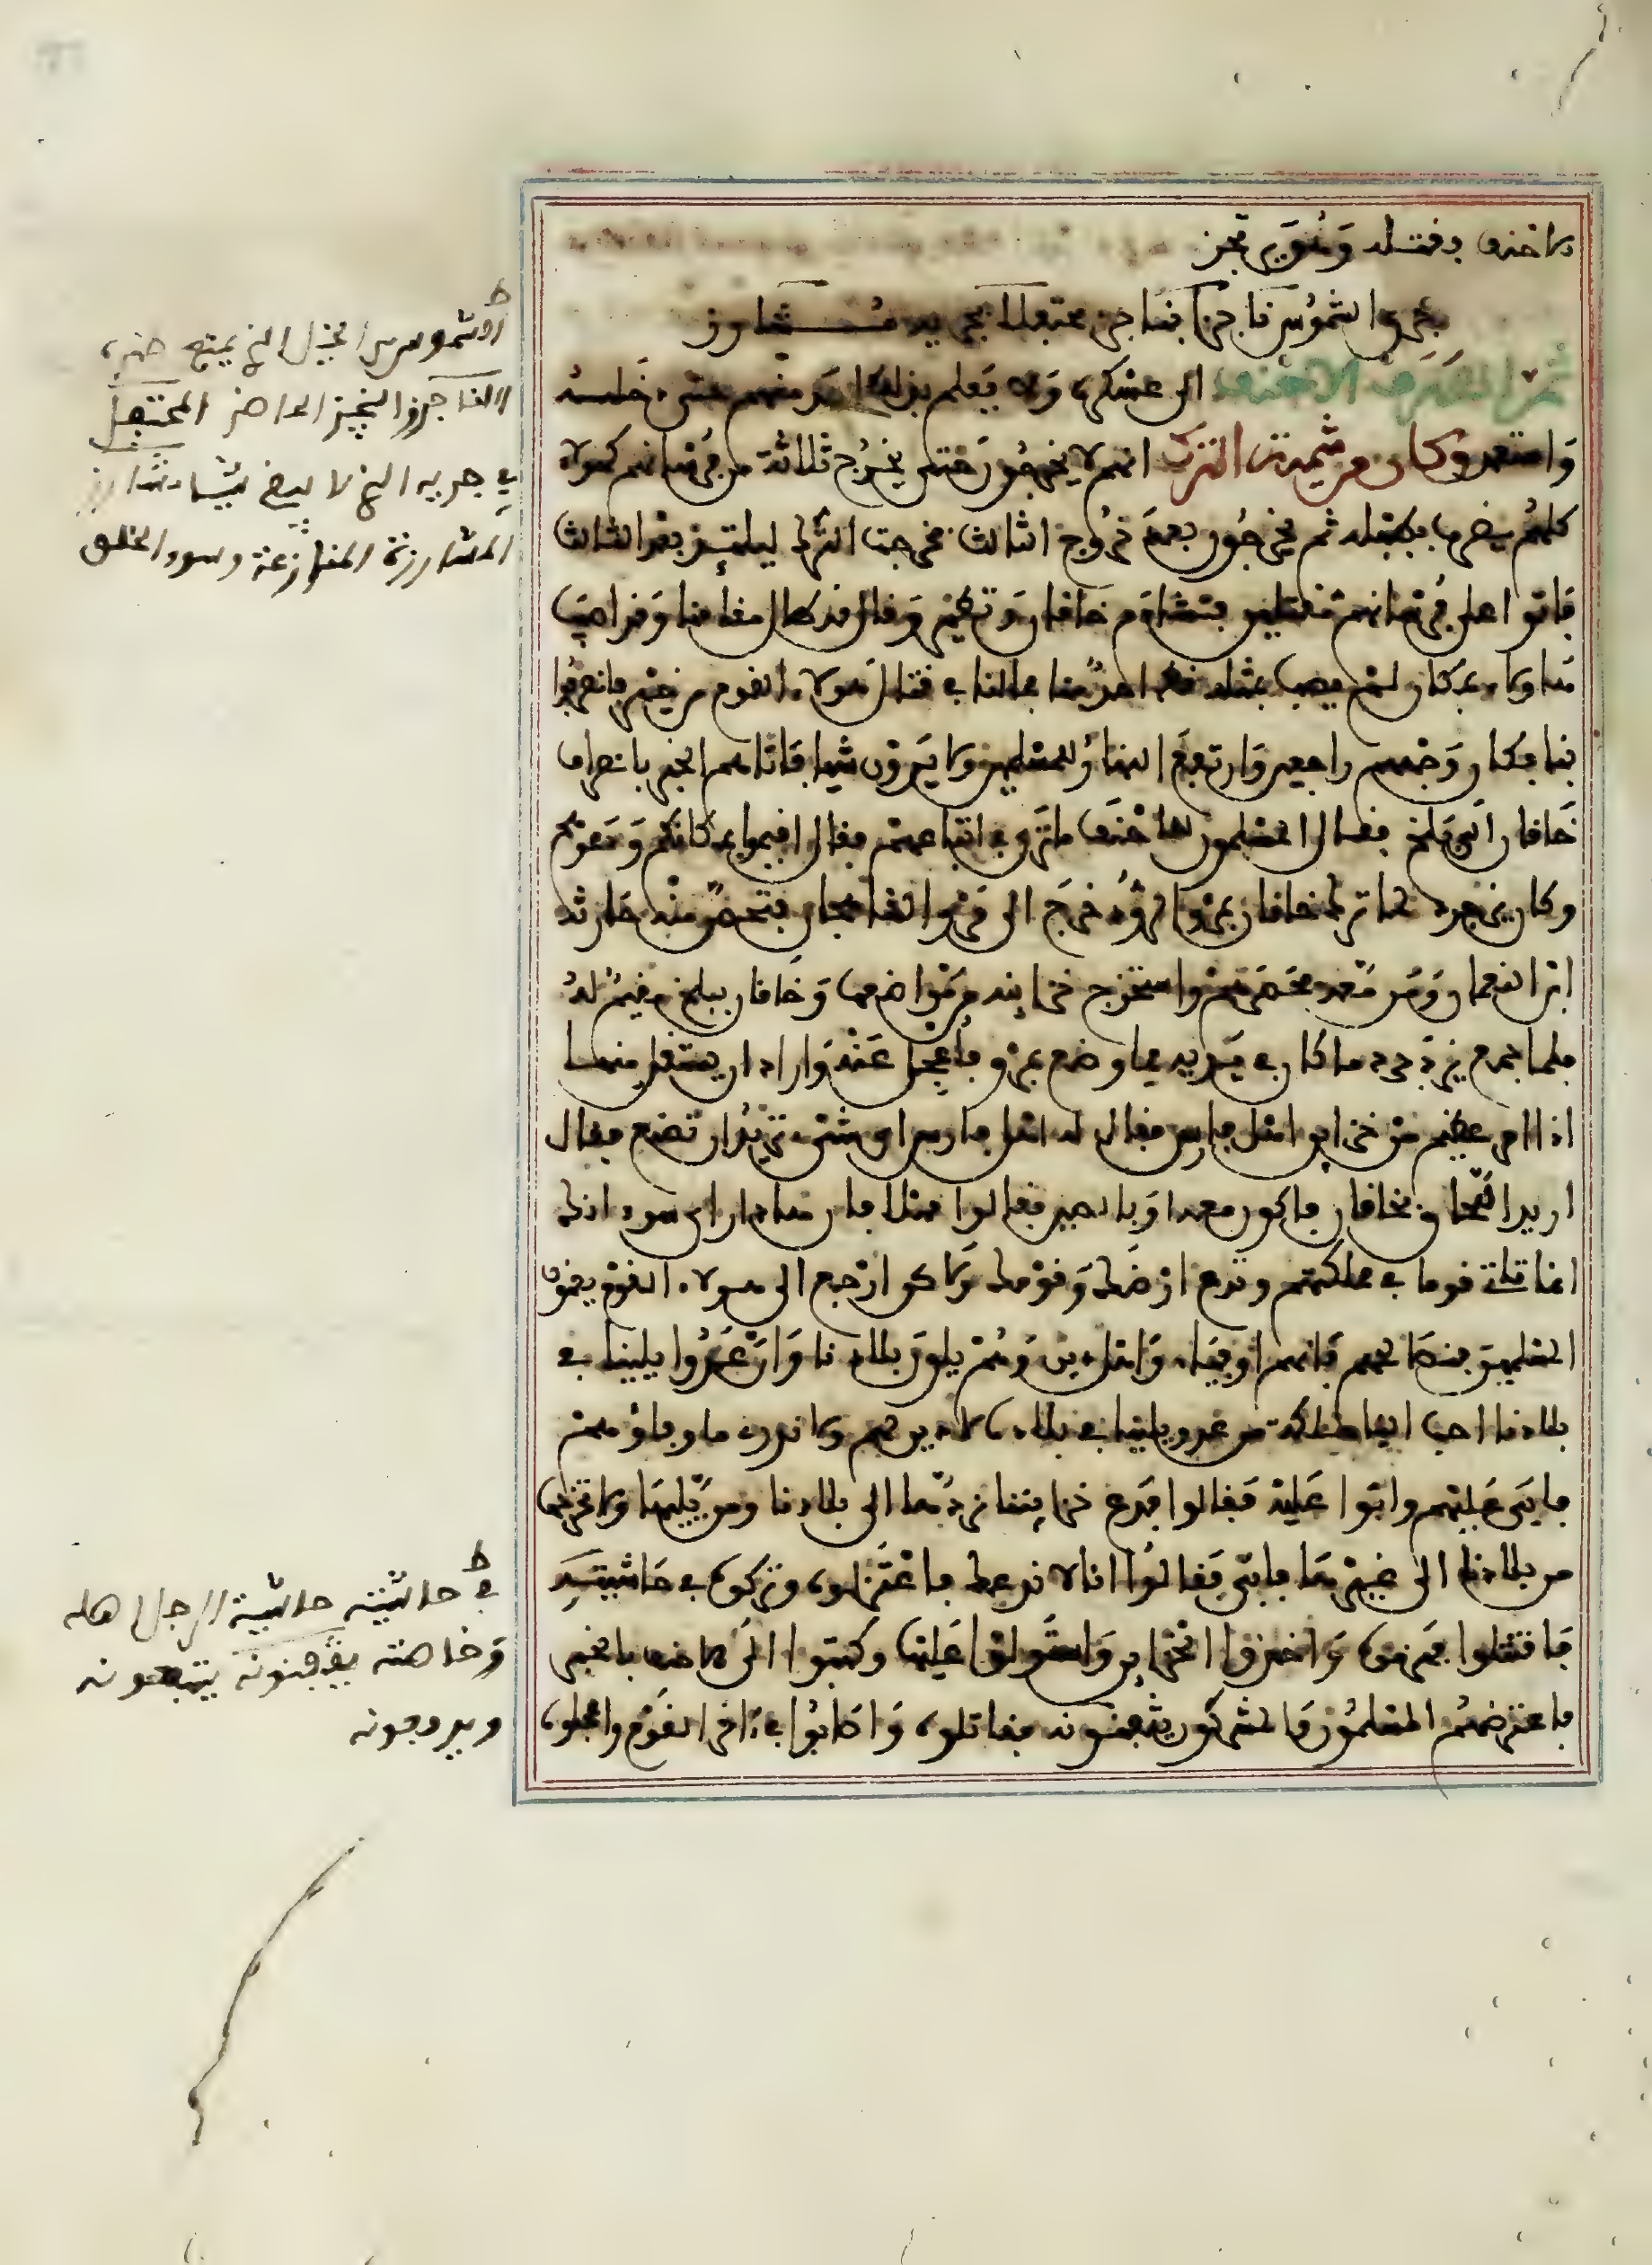 الاحنف فقتله وهو يرتجز
جري الشموس ناجزا بناجز محتفلا في جريه مشارز
ثم انصرف الاحنف الى عسكره ولا يعلم بذلك احد منهم حتى دخله
واستعد وكان من شيمة الترك انهم لا يخرجون حتى يخرج ثلاثة من فرسانهم كهولا
كلهم يضرب بطبله ثم يخرجون بعد خروج الثالث فخرجت الترك ليلتئذ بعد الثالث
فاتوا على فرسانهم مقتلين فتشاءم خاقان وتطير وقال قد طال مقامنا وقد اصيب
هاولاء بمكان لم يصب بمثله قط احد منا مالنا في قتال هولاء القوم من خير فانصرفوا
بنا فكان وجههم راجعين وارتفع النهار للمسلمين ولا يرون شيا فاتاهم الخبر بانصراف
خاقان الى بلخ فقال المسلمون للاحنف ما ترى في اتباعهم فقال اقيموا بمكانكم ودعوهم
وكان يزدجرد لما ترك خاقان بمرو الروذ خرج الى مرو الشاهجان فتحصن منه حارثة
ابن النعمان ومن معه فحصرهم واستخرج خزاينه من مواضعها وخاقان ببلخ مقيم له
فلما جمع يزدجرد ما كان في يديه مما وضع بمرو فاعجل عنه واراد ان يستقل منها
اذا امر عظيم من خزاين اهل فارس فقال له اهل فارس اي شيء تريد ان تصنع فقال
اريد اللحاق بخاقان فاكون معه او بالصين فقالوا مهلا فان هذا راي سوء انك
انما تاتي قوما في مملكتهم وتدع ارضك وقومك ولاكن ارجع الى هولاء القوم يعني
المسلمين فنصالحهم فانهم اوفياء واهل دين وهم يلون بلادنا وان عدوا يلينا في
بلادنا احب الينا مملكة من عدو يلينا في بلاده لا دين لهم ولا ندري ما وفاؤهم
فابى عليهم وابوا عليه فقالوا فدع خزايننا نردها الى بلادنا ومن يليها ولا تخرجها
من بلادنا الى غيرها فابى فقالوا انا لا ندعك فاعتزلوه وتركوه في حاشيته
فاقتتلوا فهزموه واخذوا الخزاين واستولوا عليها وكتبوا الى الاحنف بالخبر
فاعترضهم المسلمون والمشركون يثفنونه فقاتلوه واصابوا في اخر القوم واعجلوه
ط
الشموس من الخيل الذي يمنع ظهره
الناجز والنجيز الحاضر المحتفل
في جريه الذي لا يبقي شيا
المشارزة المنازعة وسوء الخلق
ط
في حاشيته حاشية الرجل اهله
وخاصته يثفنونه يتبعونه
ويدفعونه